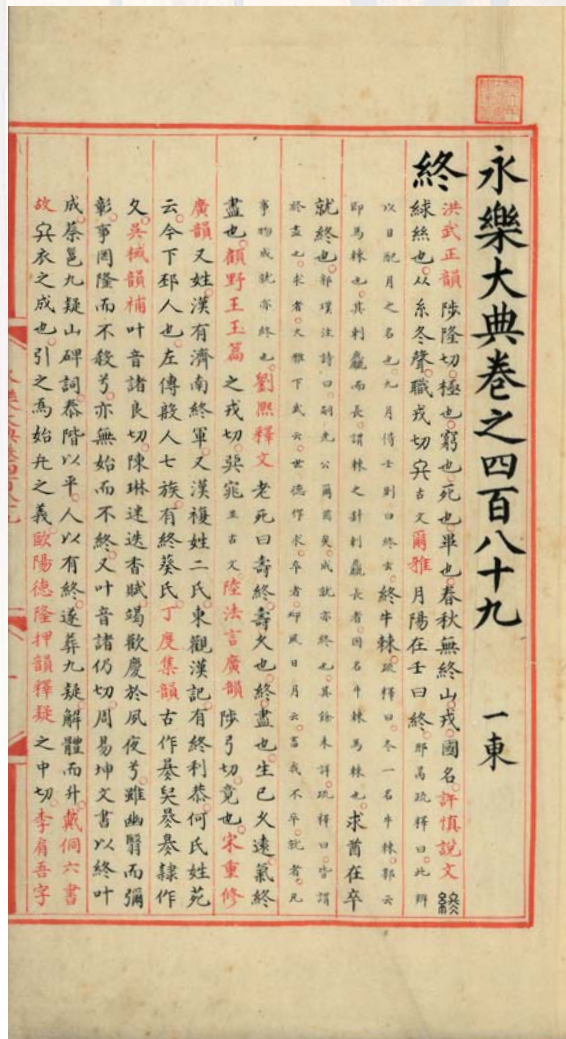 永樂大典卷之四百八十九　一東
終 洪武正韻陟隆切極也窮也死也畢也春秋無終山戎國名許慎說文
絿絲也从糸冬聲職戎切古文爾雅月陽在壬曰終邢昺疏釋曰此辨
以日配月之名也九月得壬則曰終玄終牛棘疏釋曰冬一名牛棘郭云
即馬棘也其刺麤而長謂棘之針刺麤長者因名牛棘馬棘也求酋在卒
就終也郭璞注詩曰嗣先公爾酋矣成就亦終也其餘未詳疏釋曰皆謂
終盡也求者大雅下武云世德作求卒者邶風日月云畜我不卒就者凡
事物成就亦終也劉熙釋文老死曰壽終壽久也終盡也生已久遠氣終
盡也顧野王玉篇之戎切並古文陸法言廣韻陟弓切竟也宋重修
廣韻又姓漢有濟南終軍又漢複姓二氏東觀漢記有終利恭何氏姓苑
云今下邳人也左傳殷人七族有終葵氏丁度集韻古作隸作
久吳棫韻補叶音諸良切陳琳迷迭香賦竭歡慶於夙夜兮雖幽翳而彌
彰事罔隆而不殺兮亦無始而不終又叶音諸仍切周易坤文書以終叶
成蔡邕九疑山碑詞泰階以平人以有終遂葬九疑解體而升戴侗六書
故衣之成也引之為始允之義歐陽德隆押韻釋疑之中切李肩吾字